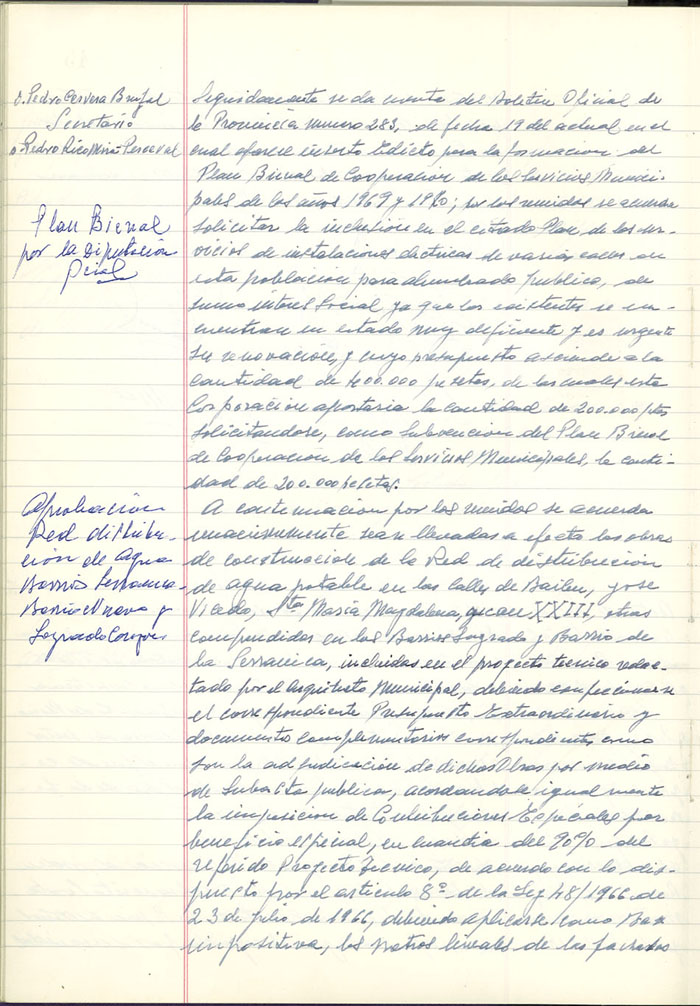 D. Pedro Cervera Brufal
Secretario
D. Pedro Rico Mira Perceval
Plan Bienal
por la Diputación
Pcial
Aprobación
Red distribu-
ción de agua
Barrio Serranica
Barrio Nuevo y
Sagrado Corazón
Seguidamente se da cuenta del Boletin Oficial de
la Provincia numero 283, de fecha 19 del actual en el
cual aparece inserto Edicto para la formacion del
Plan Bienal de Cooperacion de los Servicios Munici-
pales de los años 1969 y 1970; por los reunidos se acuerda
solicitar la inclusión en el citado Plan de los ser-
vicios de instalaciones electricas de varias calles en
esta poblacion para alumbrado publico, de
sumo interes Social ya que los existentes se en-
cuentran en estado muy deficiente y es urgente
su renovación, y cuyo presupuesto asciende a la
cantidad de 400.000 pesetas, de las cuales esta
Corporacion aportaria la cantidad de 200.000 ptas
solicitandose, como Subvencion del Plan Bienal
de Cooperacion de los Servicios Municipales, la canti-
dad de 200.000 pesetas.
A continuacion por los reunidos se acuerda
unanimemente sean llevadas a efecto las obras
de construccion de la Red de distribución
de agua potable en las calles de Bailen, Jose
Vicedo, Sta Maria Magdalena, Juan XXIII, otras
comprendidas en los Barrios Sagrado y Barrio de
la Serranica, incluidas en el proyecto tecnico redac-
tado por el Arquitecto Municipal, debiendo confeccionarse
el correspondiente Presupuesto Extraordinario y
documentos complementarios correspondientes como
son la adjudicación de dichas Obras por medio
de Subasta publica, acordandose igualmente
la imposicion de Contribuciones Especiales por
beneficio especial, en cuantia del 90% del
referido Proyecto Tecnico, de acuerdo con lo dis-
puesto por el articulo 8º de la Ley 48/1966 de
23 de julio de 1966, debiendo aplicarse como Base
impositiva, los metros lineales de las fachadas